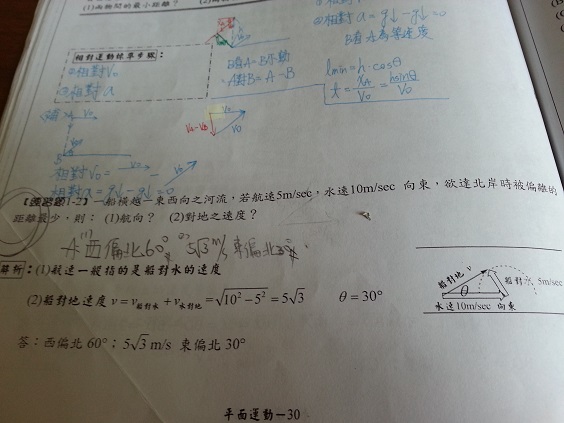 (1)兩物間的最小距離？ (2)
②相對 a = g↓ - g↓ = 0
B看A為等速度
相對運動標準步驟：
①相對 V₀
②相對 a
B看A = B不動
A對B = A - B
lmin = h·cosθ
t = XA/V₀ = hsinθ/V₀
V₀
相對 V₀ =
相對 a = g↓ - g↓ = 0
【練習題1-2】一船橫越一東西向之河流，若航速5m/sec，水速10m/sec 向東，欲達北岸時被偏離的
距離最少，則： (1)航向？ (2)對地之速度？
A：(1)西偏北60° (2) 5√3 m/s 東偏北30°
解析：(1)航速一般指的是船對水的速度
(2)船對地速度 v = v船對水 + v水對地 = √(10² − 5²) = 5√3 θ = 30°
船對地 v
船對水 5m/sec
θ
水速10m/sec 向東
答：西偏北 60°； 5√3 m/s 東偏北 30°
平面運動－30